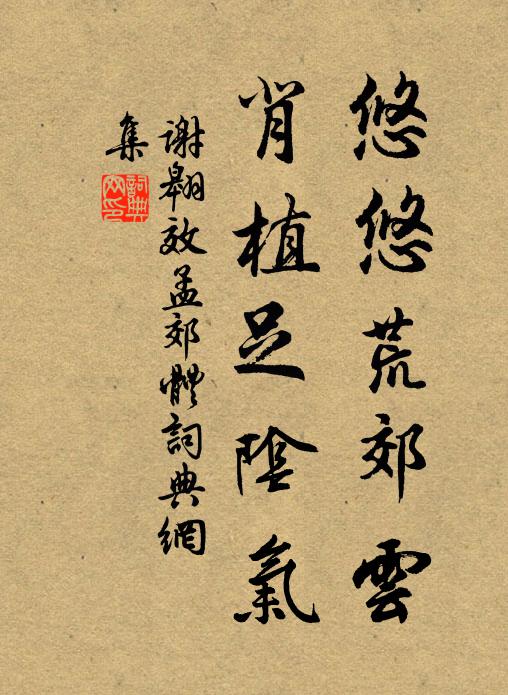 悠悠荒郊雲
肖植足陰氣
謝翱效孟郊體詞典網
集
詞典
网印